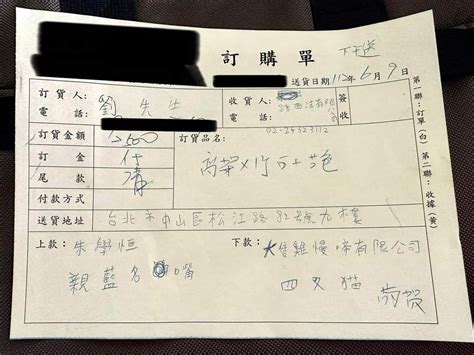 訂購單 下午送
送貨日期 112年6月9日
訂貨人: 劉先生
電話:
收貨人: 路西法有限
電話: 公司
簽收
02-24323112
訂貨金額 2500
訂貨品名:
訂金 付
尾款 清
高架×1
付款方式
送貨地址 台北市中山區松江路82號九樓
上款: 朱學恒
親藍名嘴
下款: 大隻雞慢啼有限公司
四叉貓 敬賀
第一聯:訂單(白) 第二聯:收據(黃)